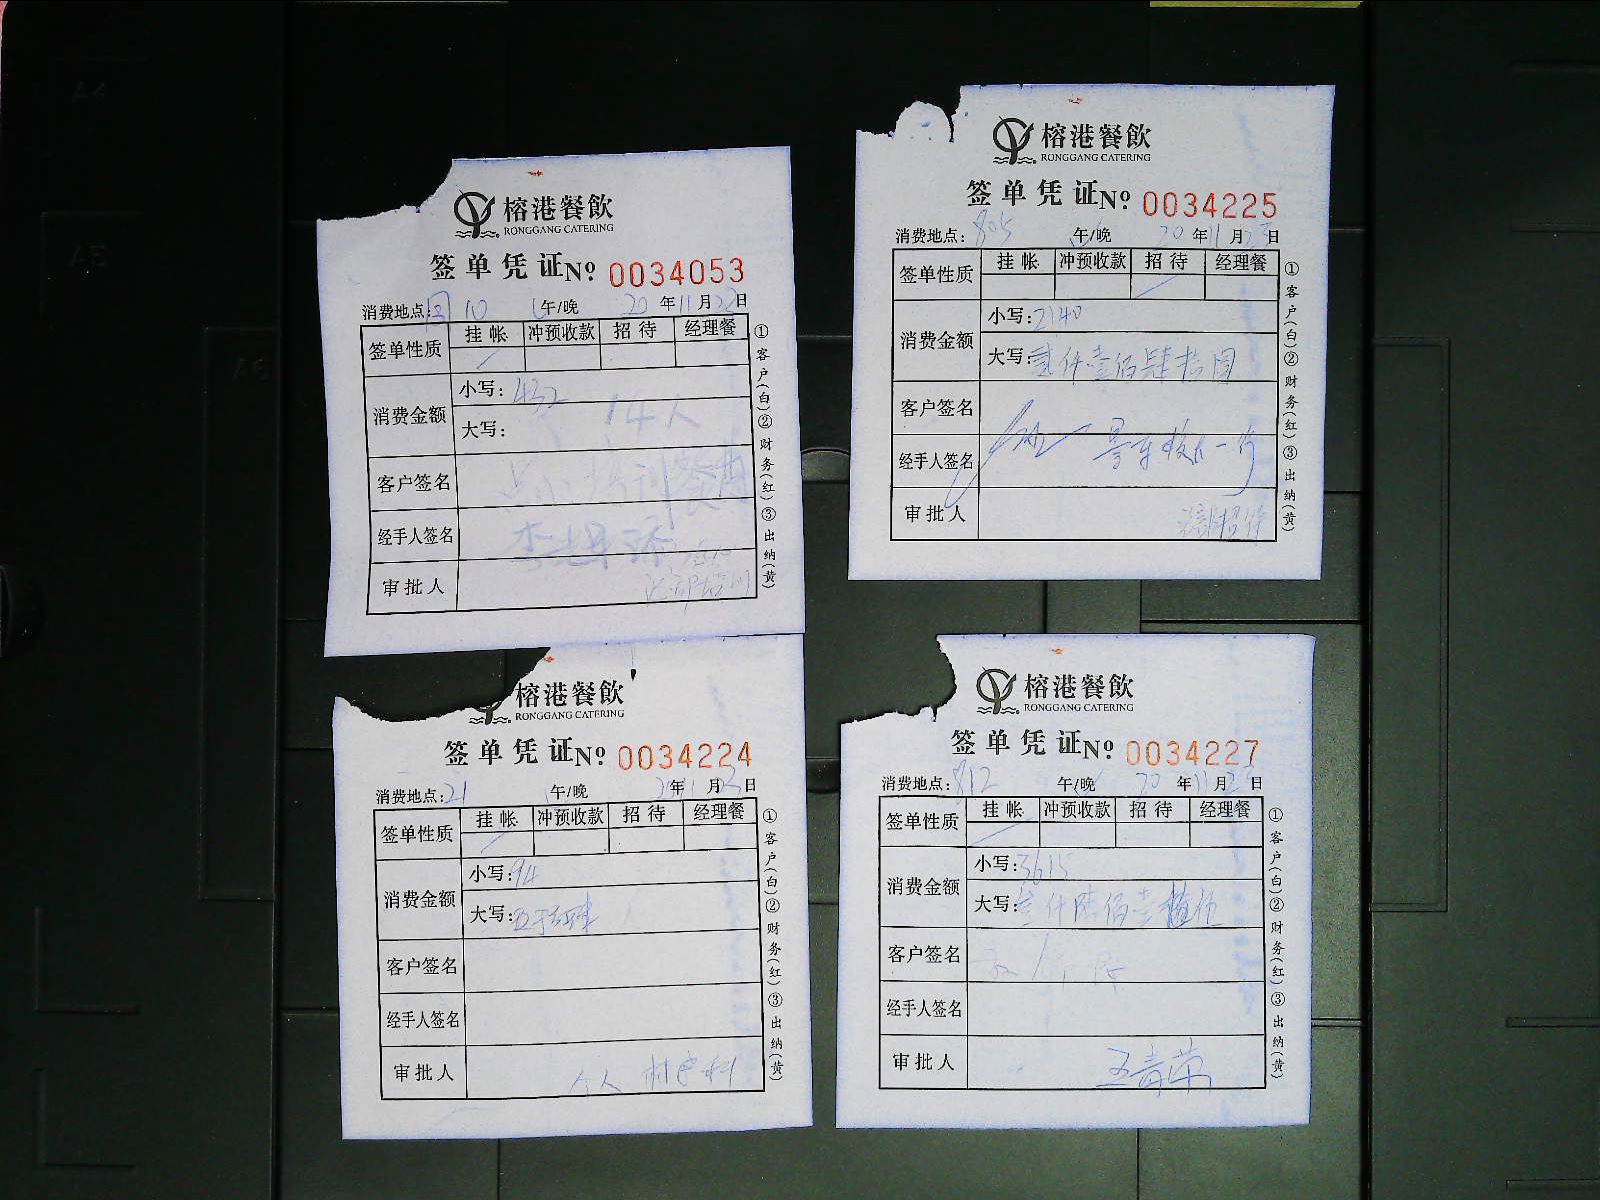 榕港餐飲
RONGGANG CATERING
签单凭证 No. 0034053
消费地点: 10 午/晚 20年11月22日
签单性质 挂帐 冲预收款 招待 经理餐
消费金额 小写: 432
14人
大写:
客户签名
经手人签名
审批人
①客户(白)②财务(红)③出纳(黄)
榕港餐飲
RONGGANG CATERING
签单凭证 No. 0034225
消费地点: 805 午/晚 20年11月日
签单性质 挂帐 冲预收款 招待 经理餐
消费金额 小写: 2140
大写: 贰仟壹佰肆拾圆
客户签名
经手人签名
审批人
①客户(白)②财务(红)③出纳(黄)
榕港餐飲
RONGGANG CATERING
签单凭证 No. 0034224
消费地点: 21 午/晚 年月日
签单性质 挂帐 冲预收款 招待 经理餐
消费金额 小写: 94
大写:
客户签名
经手人签名
审批人 个人
①客户(白)②财务(红)③出纳(黄)
榕港餐飲
RONGGANG CATERING
签单凭证 No. 0034227
消费地点: 812 午/晚 20年11月日
签单性质 挂帐 冲预收款 招待 经理餐
消费金额 小写: 3615
大写: 仟陆佰壹拾伍
客户签名
经手人签名
审批人 王青荣
①客户(白)②财务(红)③出纳(黄)